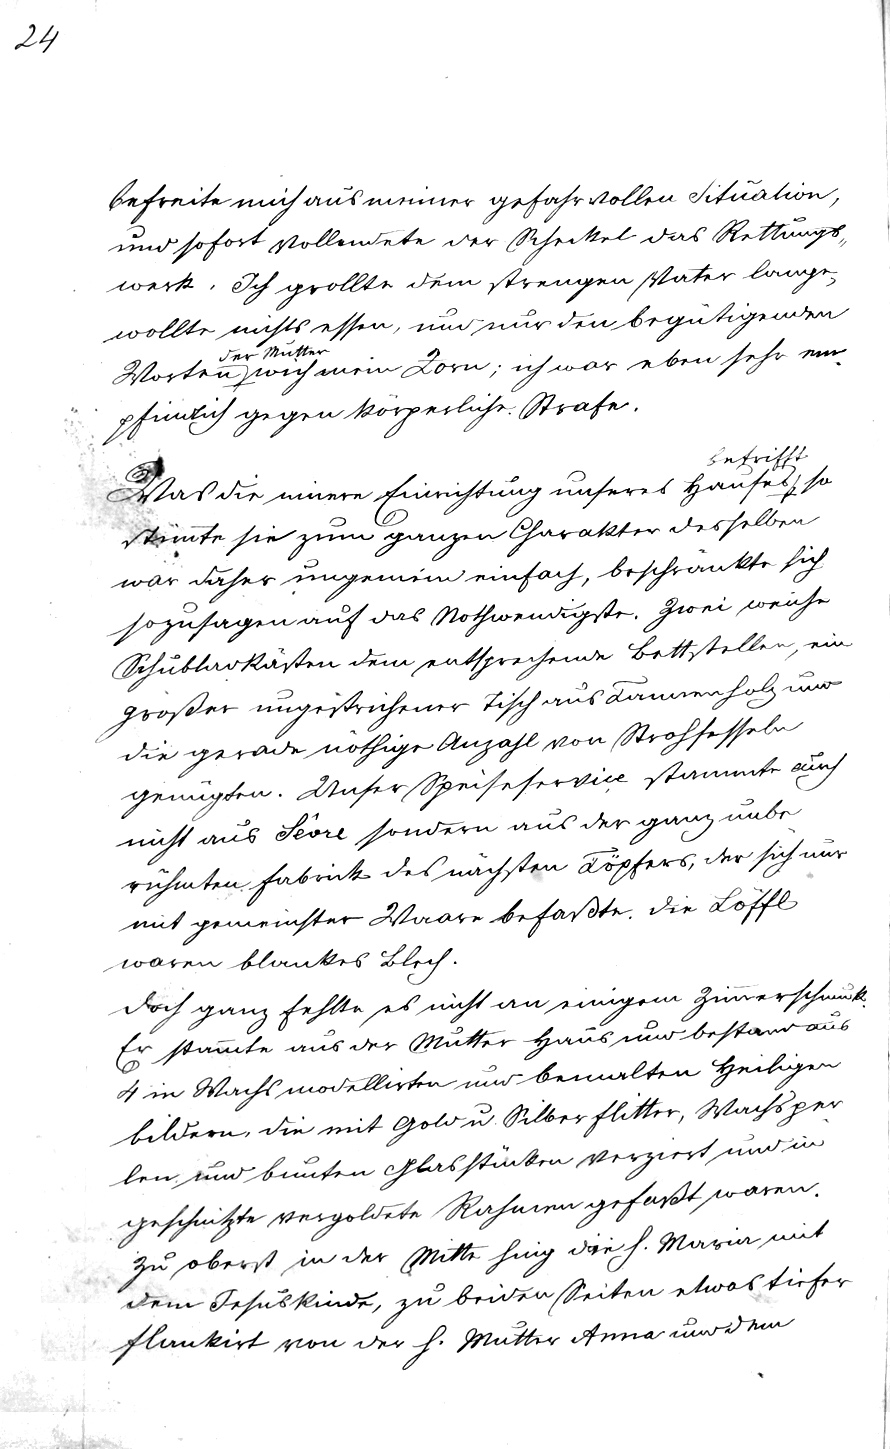 24
befreite mich aus meiner gefahrvollen Situation,
und sofort vollendete der Scheckel das Rettungs„
werk. Ich grollte dem strengen Vater lange,
wollte nichts essen, und nur den begütigenden
der Mutter
Worten wich mein Zorn; ich war eben sehr em-
pfindlich gegen körperliche Strafe.
betrifft
Was die innere Einrichtung unseres Hauses, so
stimte sie zum ganzen Charakter desselben
war daher ungemein einfach, beschränkte sich
sozusagen auf das Nothwendigste. Zwei weiche
Schubladkästen dem entsprechende Bettstellen, ein
großer ungestrichener Tisch aus Tannenholz und
die gerade nöthige Anzahl von Strohsesseln
genügten. Unser Speiseservice stammte auch
nicht aus Sêvre sondern aus der ganz unbe
rühmten Fabrick des nächsten Töpfers, der sich nur
mit gemeinster Waare befaßte. Die Löffl
waren blankes Blech.
Doch ganz fehlte es nicht an einigem Zimerschmuk.
Er stamte aus der Mutter Haus und bestand aus
4 in Wachs modellirten und bemalten Heiligen
bildern, die mit Gold u Silberflitter, Wachsper
len und bunten Glasstücken verziert und in
geschnitzte vergoldete Rahmen gefaßt waren.
Zu oberst in der Mitte hing die h. Maria mit
dem Jesuskinde, zu beiden Seiten etwas tiefer
flankirt von der h. Mutter Anna und dem